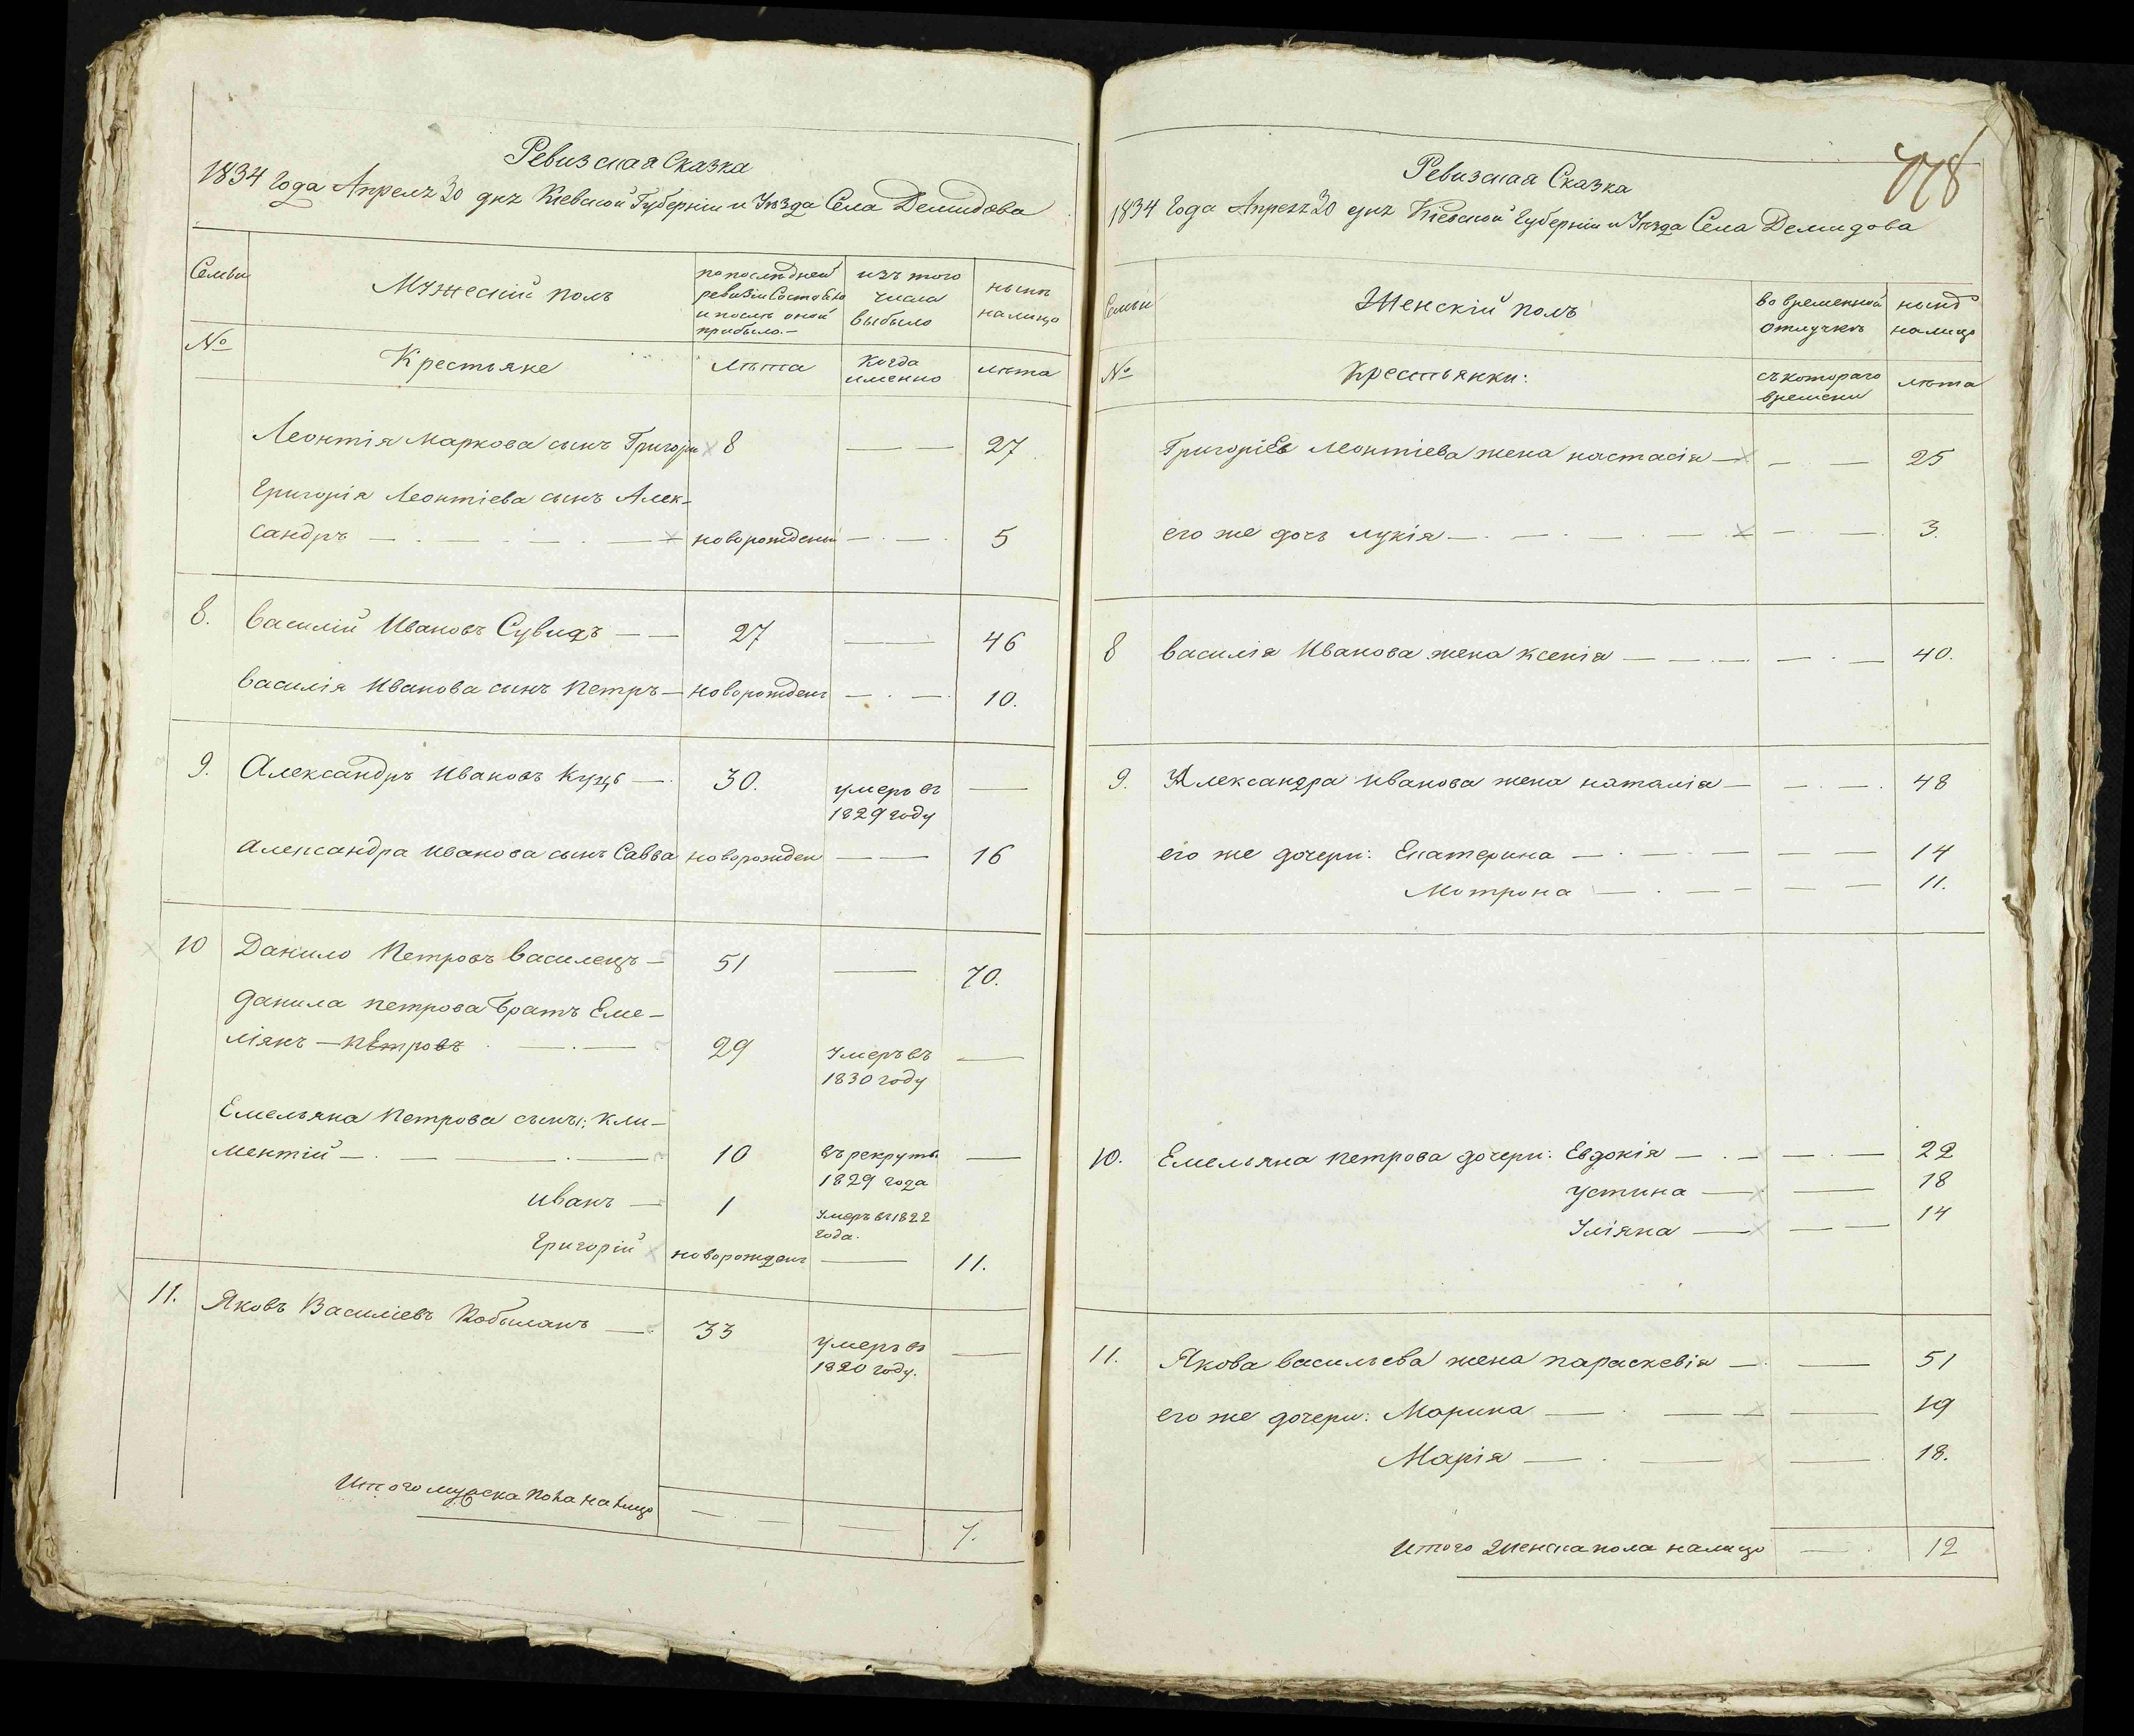 Ревизская Сказка
1834 Года Апреля 30 дня Кіевской Губерніи и Уѣзда Села Демидова
Семьи Мужескій полъ по послѣдней ревизіи Состояло и послѣ оной прибыло.— изъ того числа выбыло нынѣ налицо
№ Крестьяне лѣта Когда именно лѣта
Леонтія Маркова сынъ Григори 8 — — 27
Григорія Леонтіева сынъ Алек-
сандръ — новорожденн — 5
8. Василій Ивановъ Сувидъ — — 27 — 46
Василія Иванова сынъ Петръ — новорожден — 10.
9. Александръ Ивановъ Куцъ — 30. умеръ въ —
1829 году
Александра Иванова сынъ Савва новорожден — — 16
10 Данило Петровъ Василецъ — 51 — 70.
Данила Петрова Братъ Еме-
ліянъ — Петровъ — 29 умеръ въ —
1830 году
Емельяна Петрова сыны: Кли-
ментій — 10 въ рекруты —
1829 года
Иванъ — 1 умеръ въ 1822
года.
Григорій новорожден — 11.
11. Яковъ Василіевъ Кобыланъ — 33 умеръ въ —
1820 году.
Итого мужеска пола налицо — — 7.
778
Ревизская Сказка
1834 Года Апреля 30 дня Кіевской Губерніи и Уѣзда Села Демидова
Семьи Женскій полъ во временной отлучкѣ нынѣ налицо
№ Крестьянки: съ котораго времени лѣта
Григоріев Леонтіева жена настасія — — 25
его же дочь лукія — — 3.
8 Василія Иванова жена Ксенія — — 40.
9. Александра Иванова жена наталія — — 48
его же дочери: Екатерина — — 14
Мотрона — — 11.
10. Емельяна петрова дочери: Евдокія — — 22
Устина — — 18
Уліяна — — 14
11. Якова Васильева жена параскевія — — 51
его же дочери: Марина — — 19
Марія — — 18.
Итого Женска пола налицо — 12